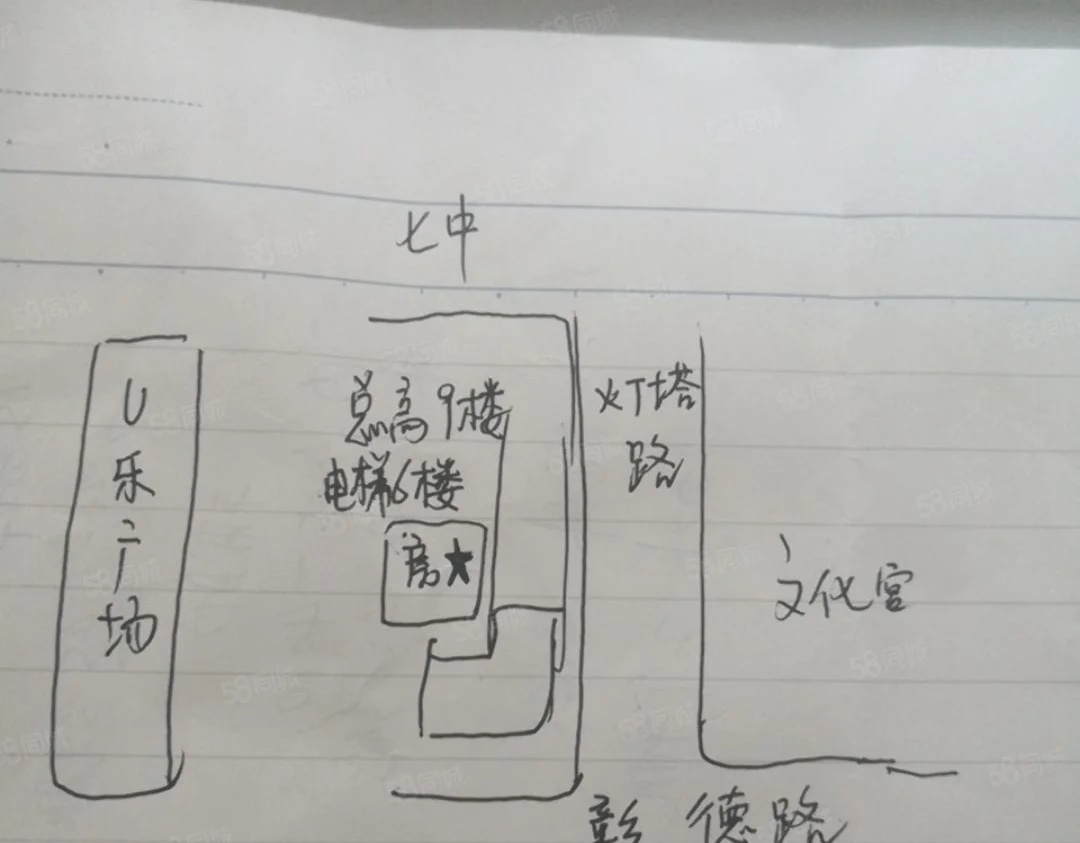 七中
U乐广场
总高9楼
电梯6楼
房★
灯塔路
文化宫
彰德路
58同城